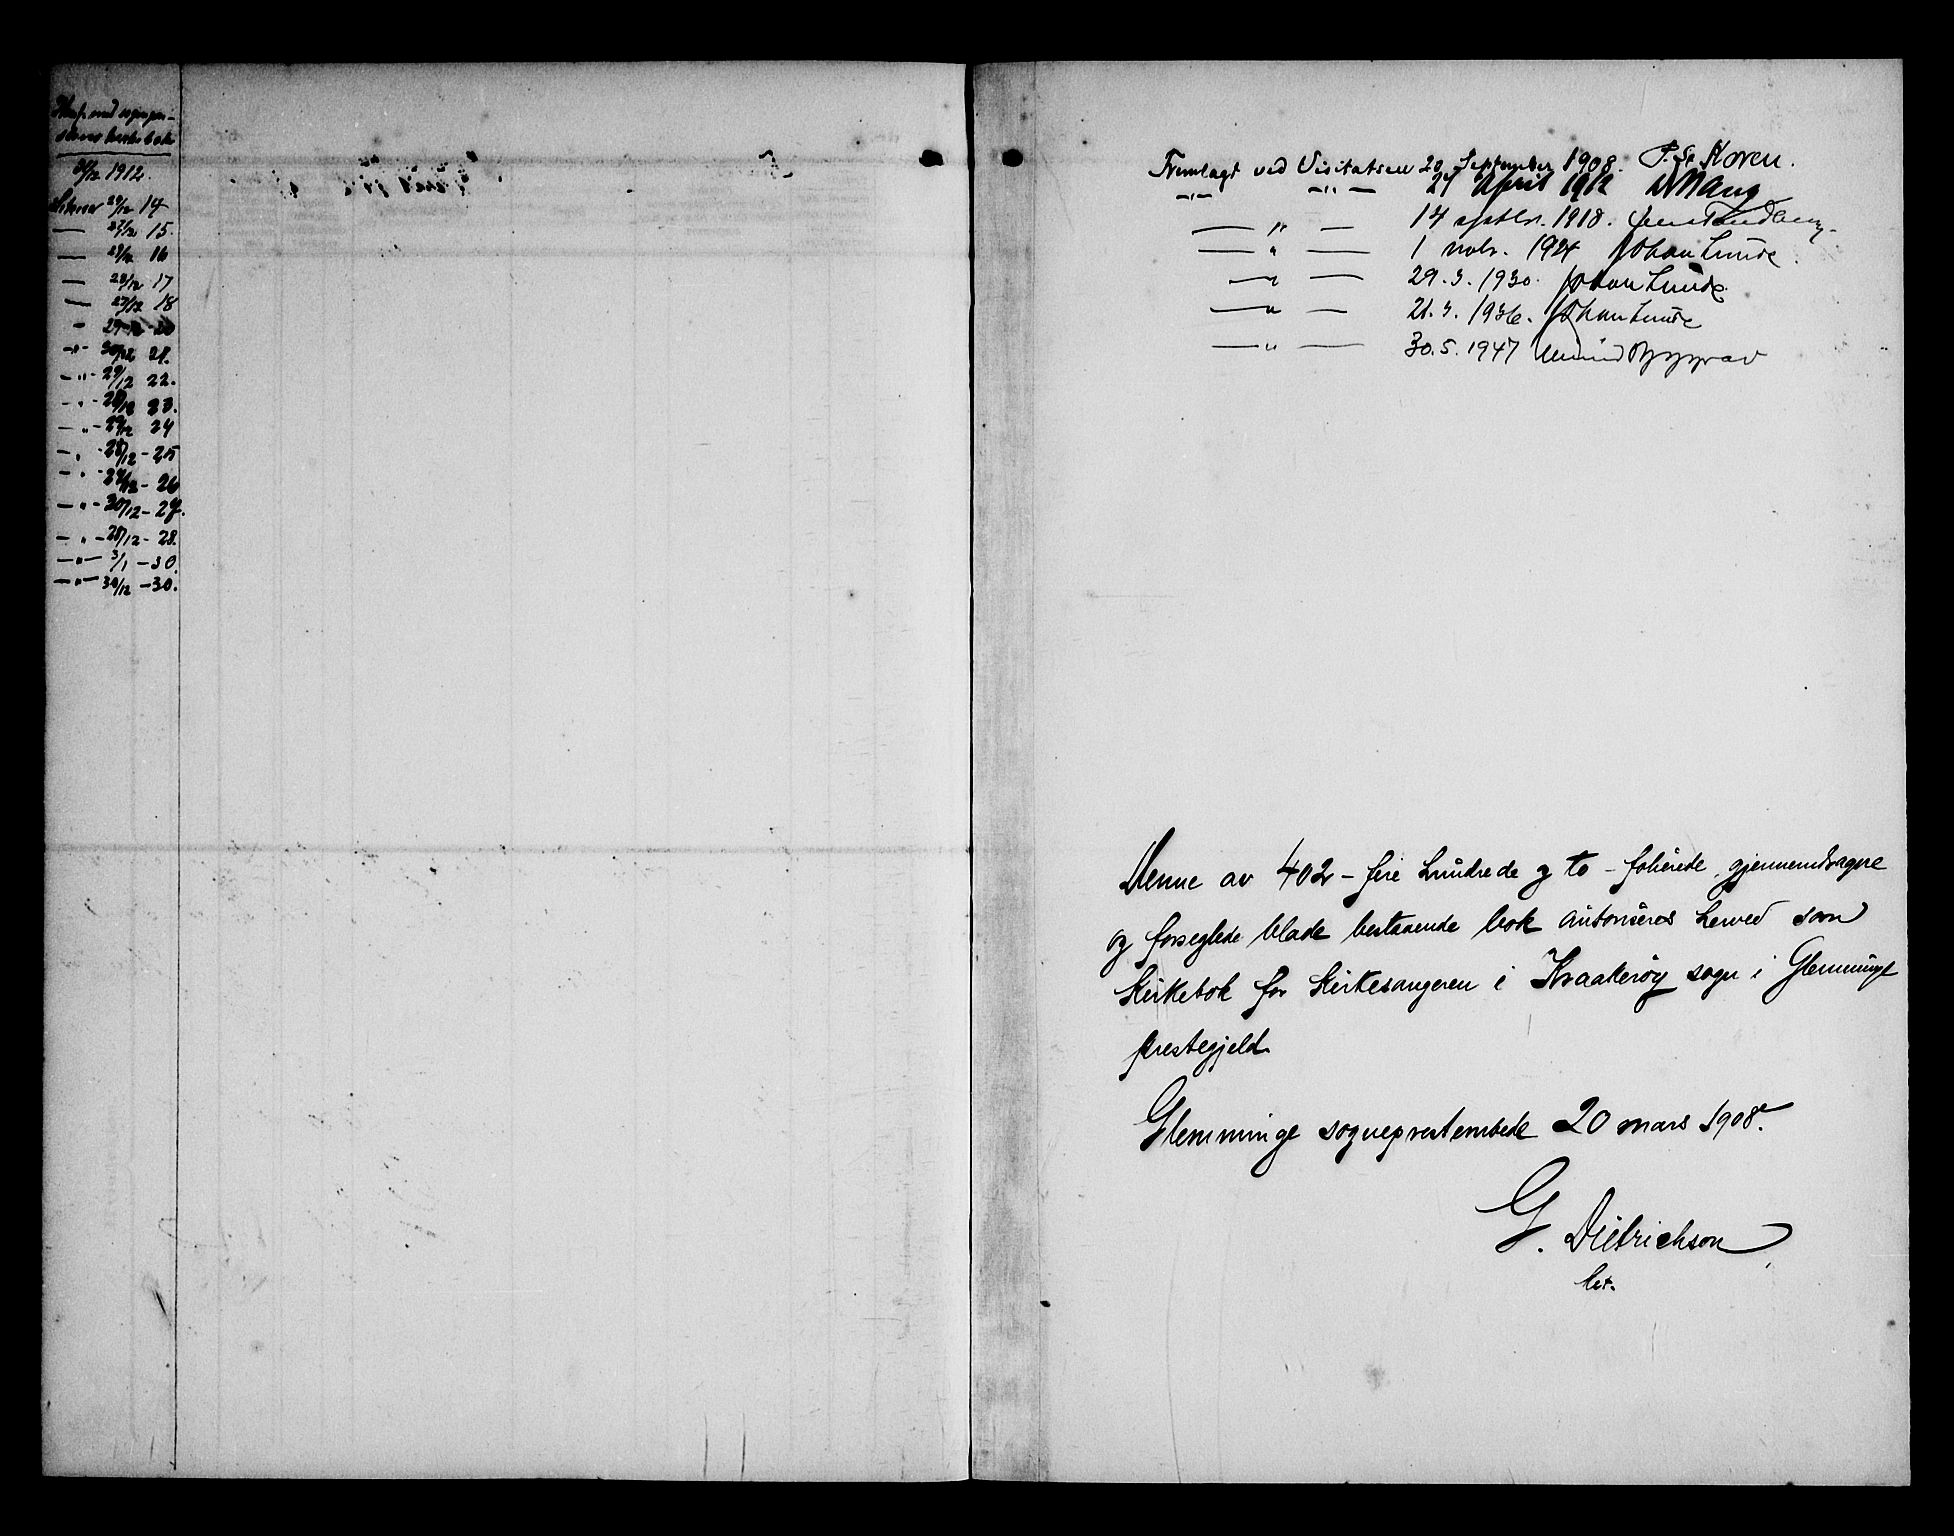 Konf. med sogneprestens kirkebok
31/12 1912.
Likesaa 29/12 14
— 27/12 15
— 29/12 16
— 28/12 17
— 27/12 18
" 29-12-20
-"- 30/12 21.
-"- 29/12 22.
-"- 28/12 23.
-"- 29/12 24
-"- 28/12 - 25
-"- 29/12 - 26
-"- 30/12 - 27.
-"- 28/12 - 28.
-"- 3/1 - 30.
-"- 30/12 - 30.
Fremlagt ved Visitatsen 20 September 1908. P. St. Koren.
-"- -"- 27 April 1912
— " — 14 septbr. 1918. Jens Tandberg.
— " — 1 novbr. 1924 Johan Lunde.
— " — 29.3.1930. Johan Lunde
— " — 21.3.1936. Johan Lunde
— " — 30.5.1947 Arvid Bryggrav
Denne av 402 - fire hundrede og to - folierede, gjennemdragne
og forseglede blade bestaaende bok autoriseres herved som
Kirkebok for Kirkesangeren i Kraakerøy sogn i Glemminge
prestegjeld.
Glemminge sogneprestembede 20 mars 1908.
G. Dietrichson
bet.